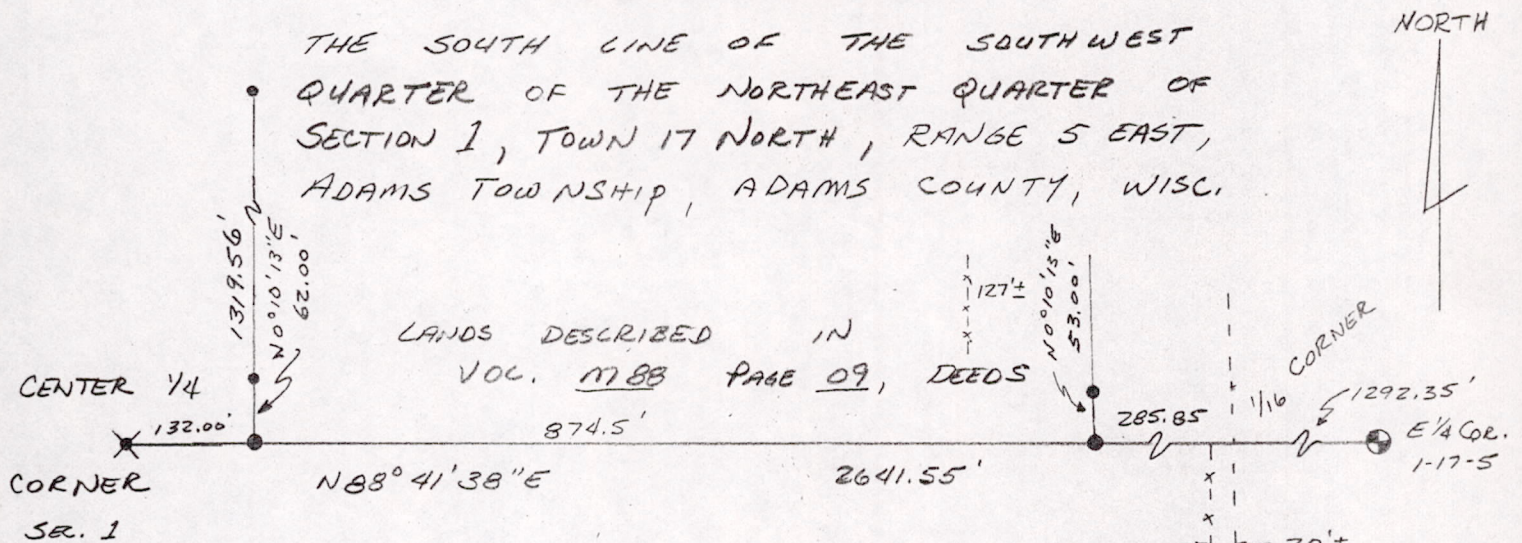 NORTH
THE SOUTH LINE OF THE SOUTHWEST
QUARTER OF THE NORTHEAST QUARTER OF
SECTION 1, TOWN 17 NORTH, RANGE 5 EAST,
ADAMS TOWNSHIP, ADAMS COUNTY, WISC.
1319.56'
N0°10'13"E
62.00'
127'±
N0°10'13"E
53.00'
LANDS DESCRIBED IN
VOL. M88 PAGE 09, DEEDS
CENTER 1/4
132.00'
874.5'
285.85
1/16 CORNER
1292.35'
E 1/4 COR.
1-17-5
CORNER
SEC. 1
N88°41'38"E
2641.55'